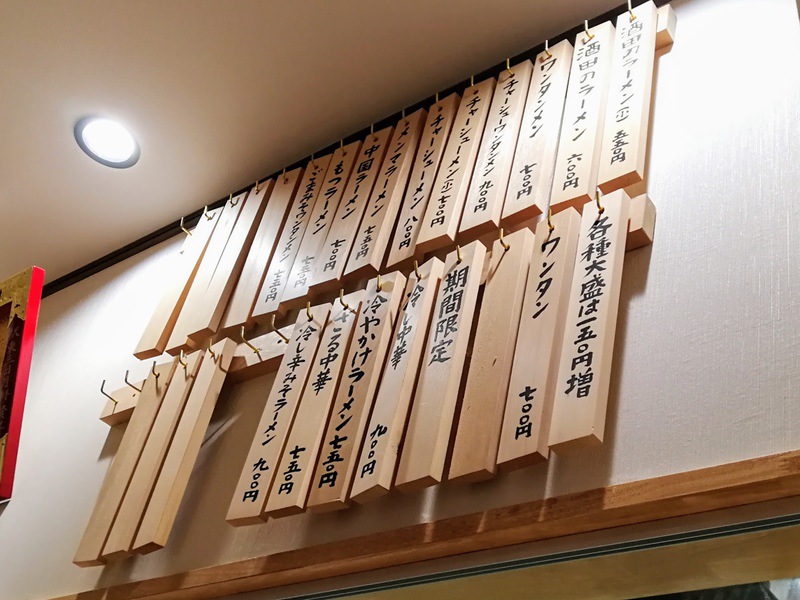 酒田のラーメン(小) 五五〇円
酒田のラーメン 六〇〇円
ワンタンメン 七〇〇円
チャーシューワンタンメン 九〇〇円
チャーシューメン(小) 七〇〇円
チャーシューメン 八〇〇円
メンマラーメン 七五〇円
中国ラーメン 七五〇円
もつラーメン 七〇〇円
ごまみそワンタンメン 七五〇円
各種大盛は一五〇円増
ワンタン 七〇〇円
期間限定
冷し中華 九〇〇円
冷やかけラーメン 七五〇円
ざる中華 七五〇円
冷し辛みそラーメン 九〇〇円